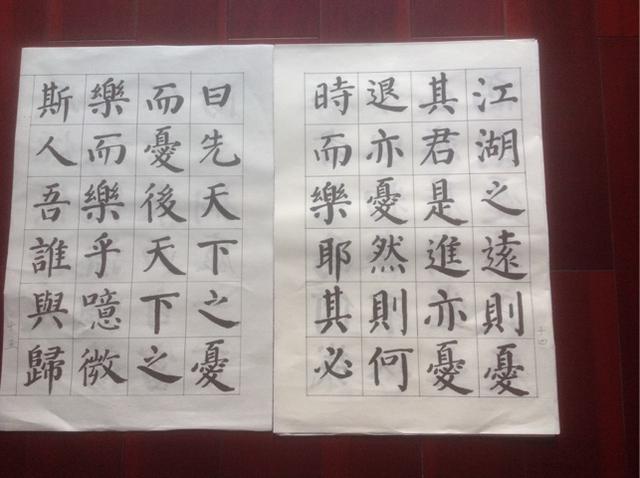 江湖之遠則憂
其君是進亦憂
退亦憂然則何
時而樂耶其必
十四
曰先天下之憂
而憂後天下之
樂而樂乎噫微
斯人吾誰與歸
十五